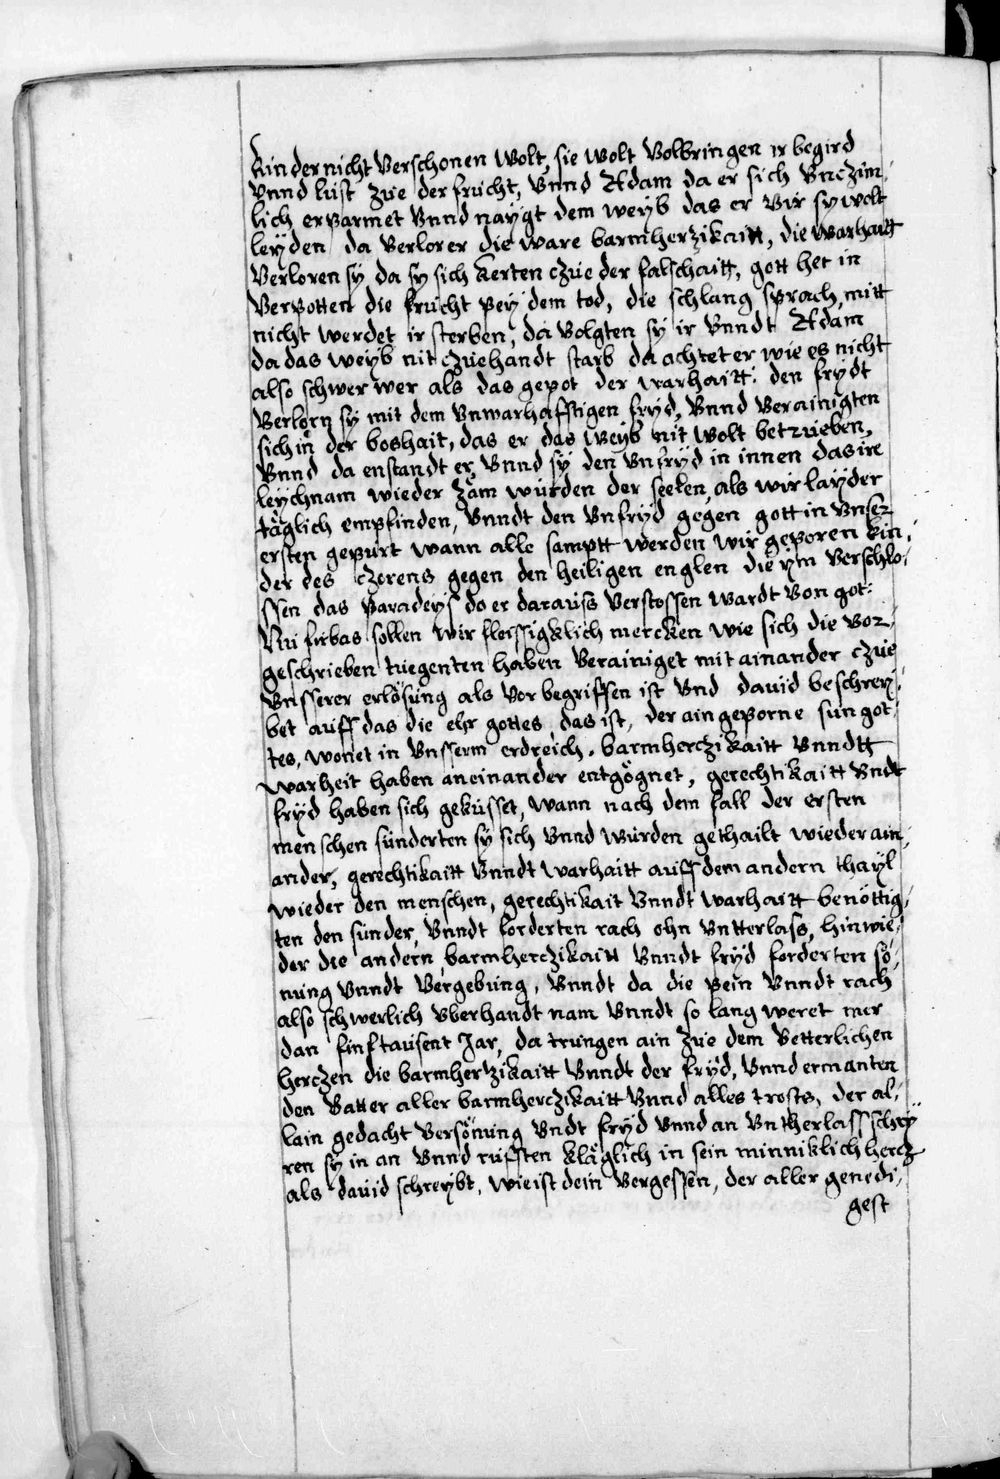 kinder nicht verschonen wolt, sie wolt volbringen ir begird
vnnd lust zue der frucht, vnnd Adam da er sich vnczim-
lich erparmet vnnd naÿgt dem weÿb das er vir sy wolt
leÿden da verlor er die ware barmherzikaitt, die warhaitt
verloren sÿ da sÿ sich kerten czue der falschaitt, gott het in
verpotten die frucht peÿ dem tod, die schlang sprach, mitt
nicht werdet ir sterben, da volgten sÿ ir vnndt Adam
da das weÿb nit czuehandt starb da achtet er wie es nicht
also schwer wer als das gepot der warhaitt: den frÿdt
verlorn sÿ mit dem vnwarhafftigen frÿd, vnnd verainigten
sich in der boshait, das er das weÿb nit wolt betrueben,
vnnd da enstandt er, vnnd sÿ den vnfrÿd in innen das ire
leÿchnam wieder zäm würden der seelen, als wir laÿder
täglich empfinden, vnndt den vnfrÿd gegen gott in vnser
ersten gepurt wann alle samptt werden wir geporen kin-
der des czorens gegen den heiligen englen die ÿm verschlo-
ssen das paradeÿs do er darauss verstossen wardt von got:
Nu firbas sollen wir fleissigklich mercken wie sich die vor-
geschrieben tuegenten haben verainiget mit ainander czue
vnsserer erlösung als vor begriffen ist vnd dauid beschreÿ-
bet auff das die ehr gottes, das ist, der aingeporne sun got-
tes, wonet in vnsserm erdreich. barmherczikaitt vnndtt
warheit haben aneinander entgögnet, gerechtikaitt vndt
frÿd haben sich geküsset, wann nach dem fall der ersten
menschen sünderten sÿ sich vnnd würden gethailt wieder ain-
ander, gerechtikaitt vnndt warhaitt auff dem andern thaÿl
wieder den menschen, gerechtikait vnndt warhaitt benöttig-
ten den sünder, vnndt forderten rach ohn vntterlass, hinwie-
der die andern barmherczikaitt vnndt frÿd forderten sö-
nung vnndt vergebung, vnndt da die pein vnndt rach
also schwerlich vberhandt nam vnndt so lang weret mer
dan finftausent Jar, da trungen ain zue dem vetterlichen
herczen die barmherzikaitt vnndt der frÿd, vnnd ermanten
den vatter aller barmherczikaitt vnnd alles trosts, der al-
lain gedacht versönung vndt frÿd vnnd an vntherlass schrÿ-
ren sÿ in an vnnd rufften kläglich in sein minniklich hercz
als dauid schreÿbt, wie ist dein vergessen, der aller genedi-
gest